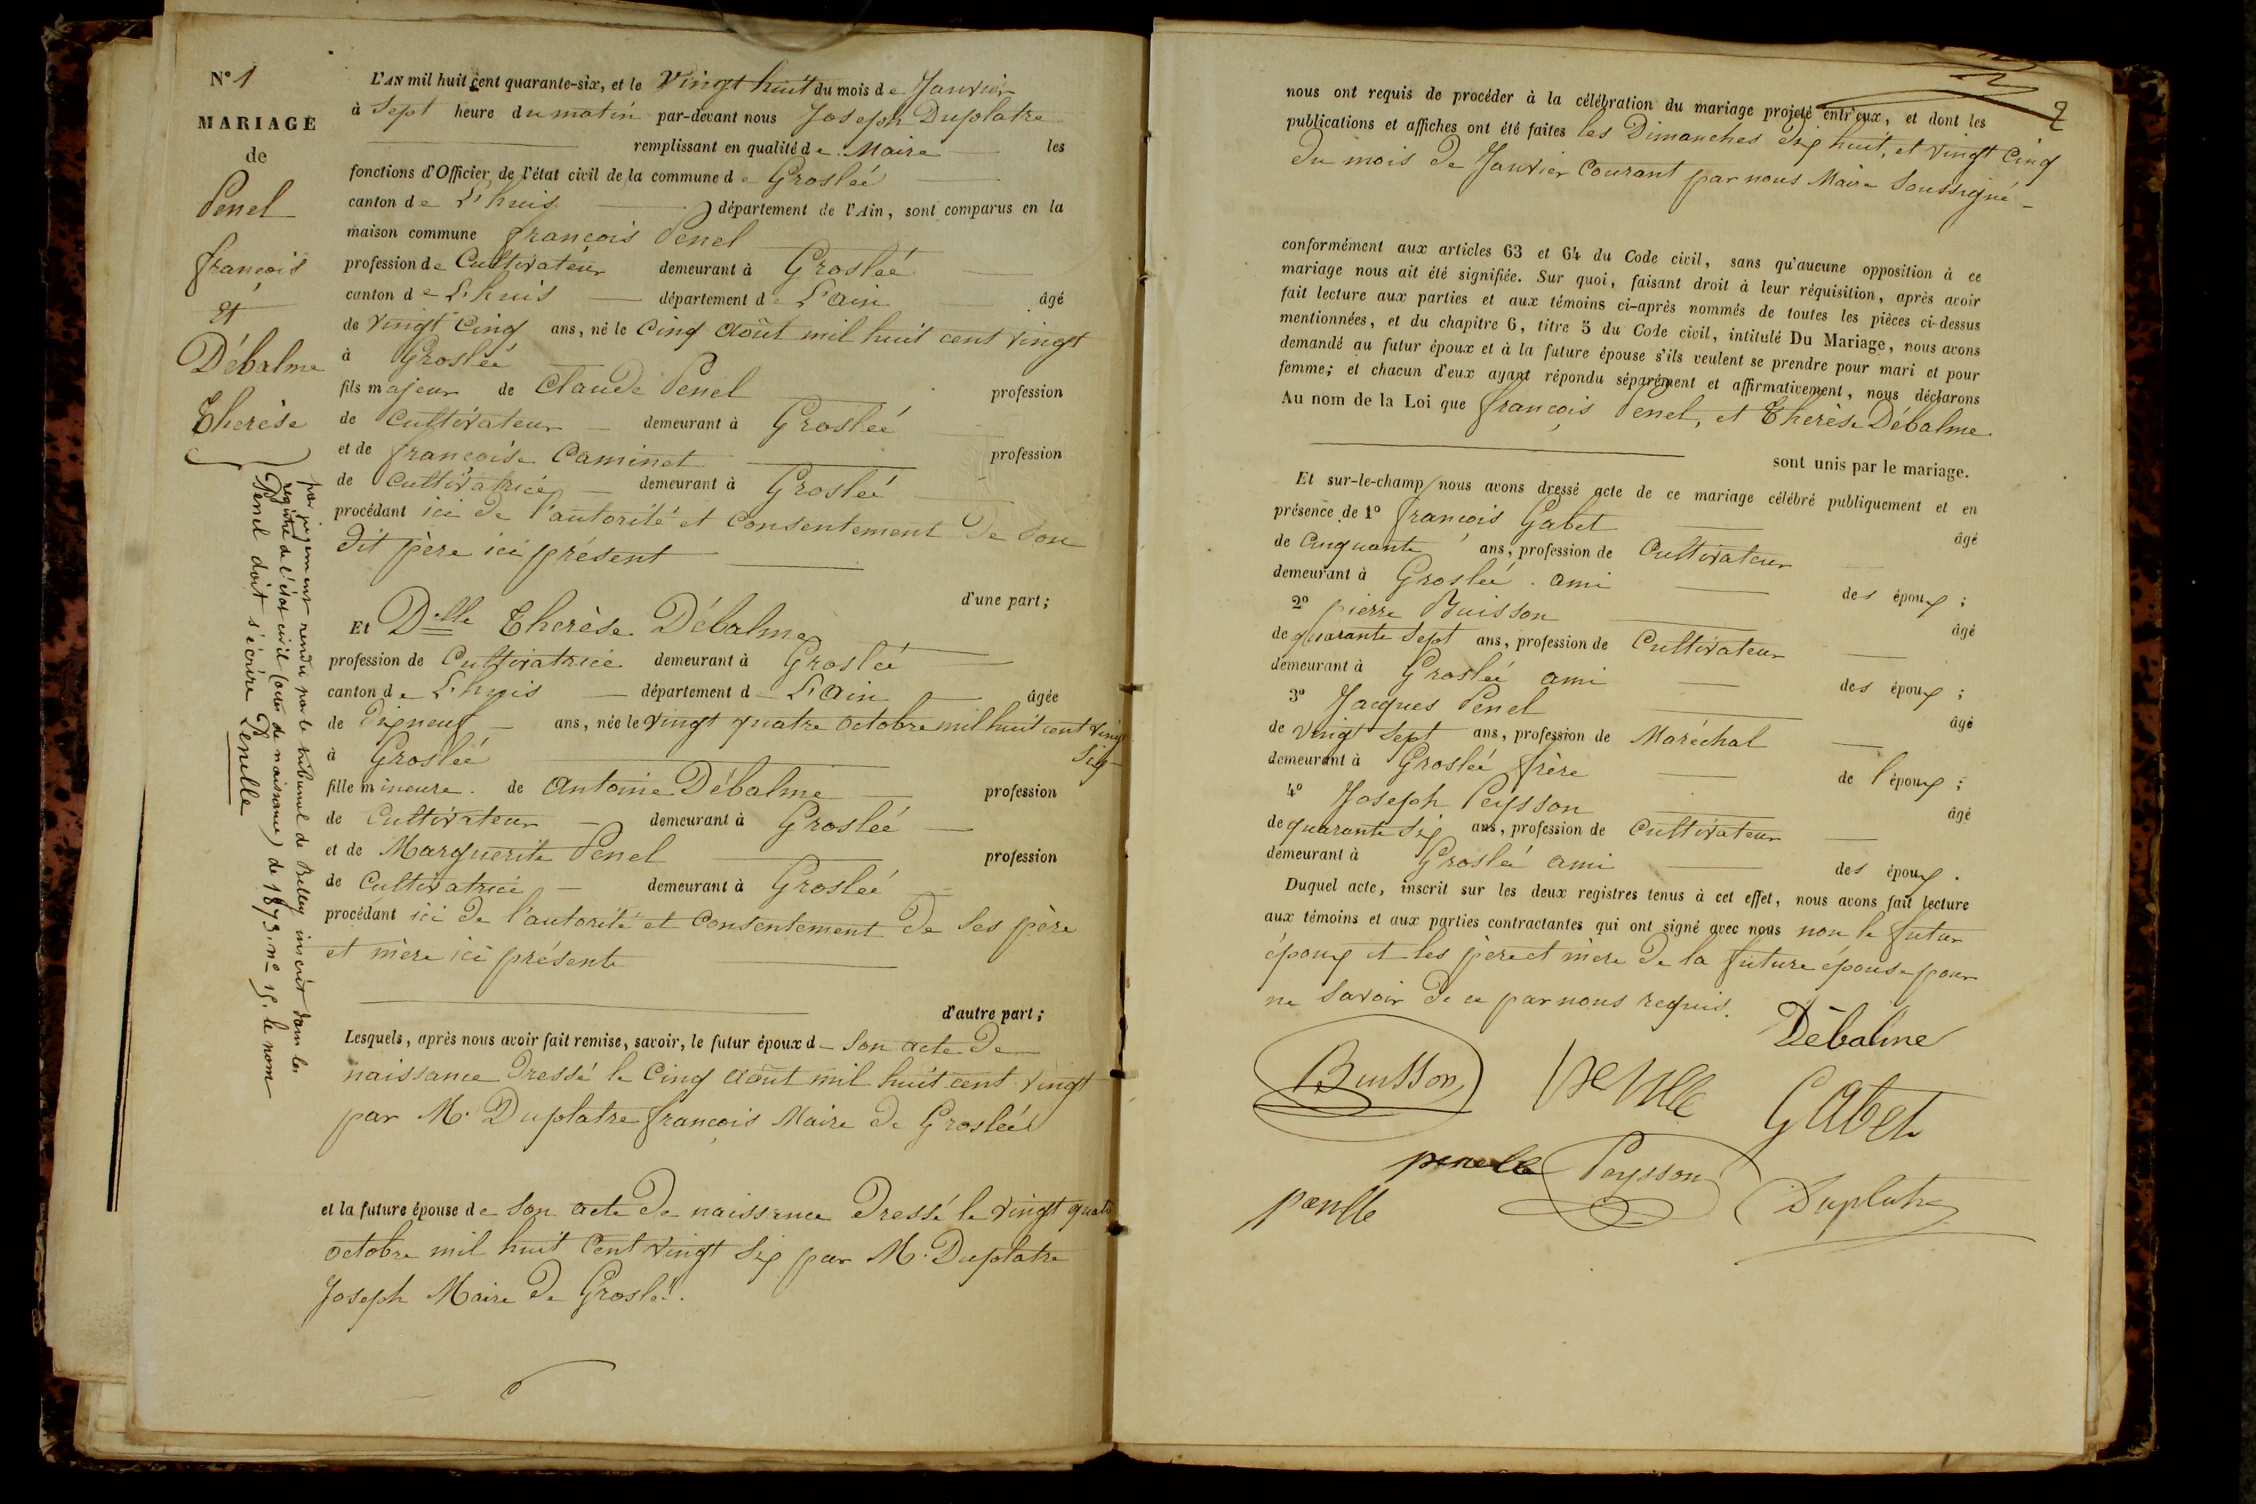 N° 1
MARIAGE
de
Penel
françois
et
Débalme
Therèse
par jugement rendu par le tribunal de Belley inscrit dans les
registres de l'état civil (actes de naissance) de 1873, n° 15, le nom
Penel doit s'écrire Penelle
L'AN mil huit cent quarante-six, et le Vingt huit du mois de Janvier
à Sept heure du matin par-devant nous Joseph Duplatre
remplissant en qualité de Maire les
fonctions d'Officier de l'état civil de la commune de Groslée
canton de L'huis département de l'Ain, sont comparus en la
maison commune françois Penel
profession de Cultivateur demeurant à Groslée
canton de L'huis département de L'ain âgé
de vingt Cinq ans, né le Cinq août mil huit cent vingt
à Groslée
fils majeur de Claude Penel profession
de Cultivateur demeurant à Groslée
et de françoise Caminet profession
de Cultivatrice demeurant à Groslée
procédant ici de l'autorité et Consentement de Son
dit père ici présent
d'une part;
Et Delle Therèse Débalme
profession de Cultivatrice demeurant à Groslée
canton de L'huis département de L'Ain âgée
de dixneuf ans, née le vingt quatre octobre mil huit cent vingt
Six
à Groslée
fille mineure de Antoine Débalme profession
de Cultivateur demeurant à Groslée
et de Marguerite Penel profession
de Cultivatrice demeurant à Groslée
procédant ici de l'autorité et Consentement de Ses père
et mère ici présents
d'autre part;
Lesquels, après nous avoir fait remise, savoir, le futur époux de Son acte de
naissance dressé le Cinq août mil huit cent vingt
par M. Duplatre françois Maire de Groslée
et la future épouse de Son acte de naissance dressé le vingt quatre
octobre mil huit Cent vingt Six par M. Duplatre
Joseph Maire de Groslée.
2
nous ont requis de procéder à la célébration du mariage projeté entr'eux, et dont les
publications et affiches ont été faites les Dimanches dix huit, et vingt Cinq
du mois de Janvier Courant par nous Maire Soussigné
conformément aux articles 63 et 64 du Code civil, sans qu'aucune opposition à ce
mariage nous ait été signifiée. Sur quoi, faisant droit à leur réquisition, après avoir
fait lecture aux parties et aux témoins ci-après nommés de toutes les pièces ci-dessus
mentionnées, et du chapitre 6, titre 5 du Code civil, intitulé Du Mariage, nous avons
demandé au futur époux et à la future épouse s'ils veulent se prendre pour mari et pour
femme; et chacun d'eux ayant répondu séparément et affirmativement, nous déclarons
Au nom de la Loi que françois Penel, et Therèse Débalme
sont unis par le mariage.
Et sur-le-champ nous avons dressé acte de ce mariage célébré publiquement et en
présence de 1° françois Gabet âgé
de Cinquante ans, profession de Cultivateur
demeurant à Groslée. ami des époux;
2° pierre Buisson âgé
de quarante Sept ans, profession de Cultivateur
demeurant à Groslée ami des époux;
3° Jacques Penel âgé
de vingt Sept ans, profession de Maréchal
demeurant à Groslée frère de l'époux;
4° Joseph Peysson âgé
de quarante Six ans, profession de Cultivateur
demeurant à Groslée ami des époux.
Duquel acte, inscrit sur les deux registres tenus à cet effet, nous avons fait lecture
aux témoins et aux parties contractantes qui ont signé avec nous non le futur
époux et les père et mère de la future épouse pour
ne Savoir de ce par nous requis.
Débalme
Buisson
Gabet
penelle
Peysson
Duplatre
penelle